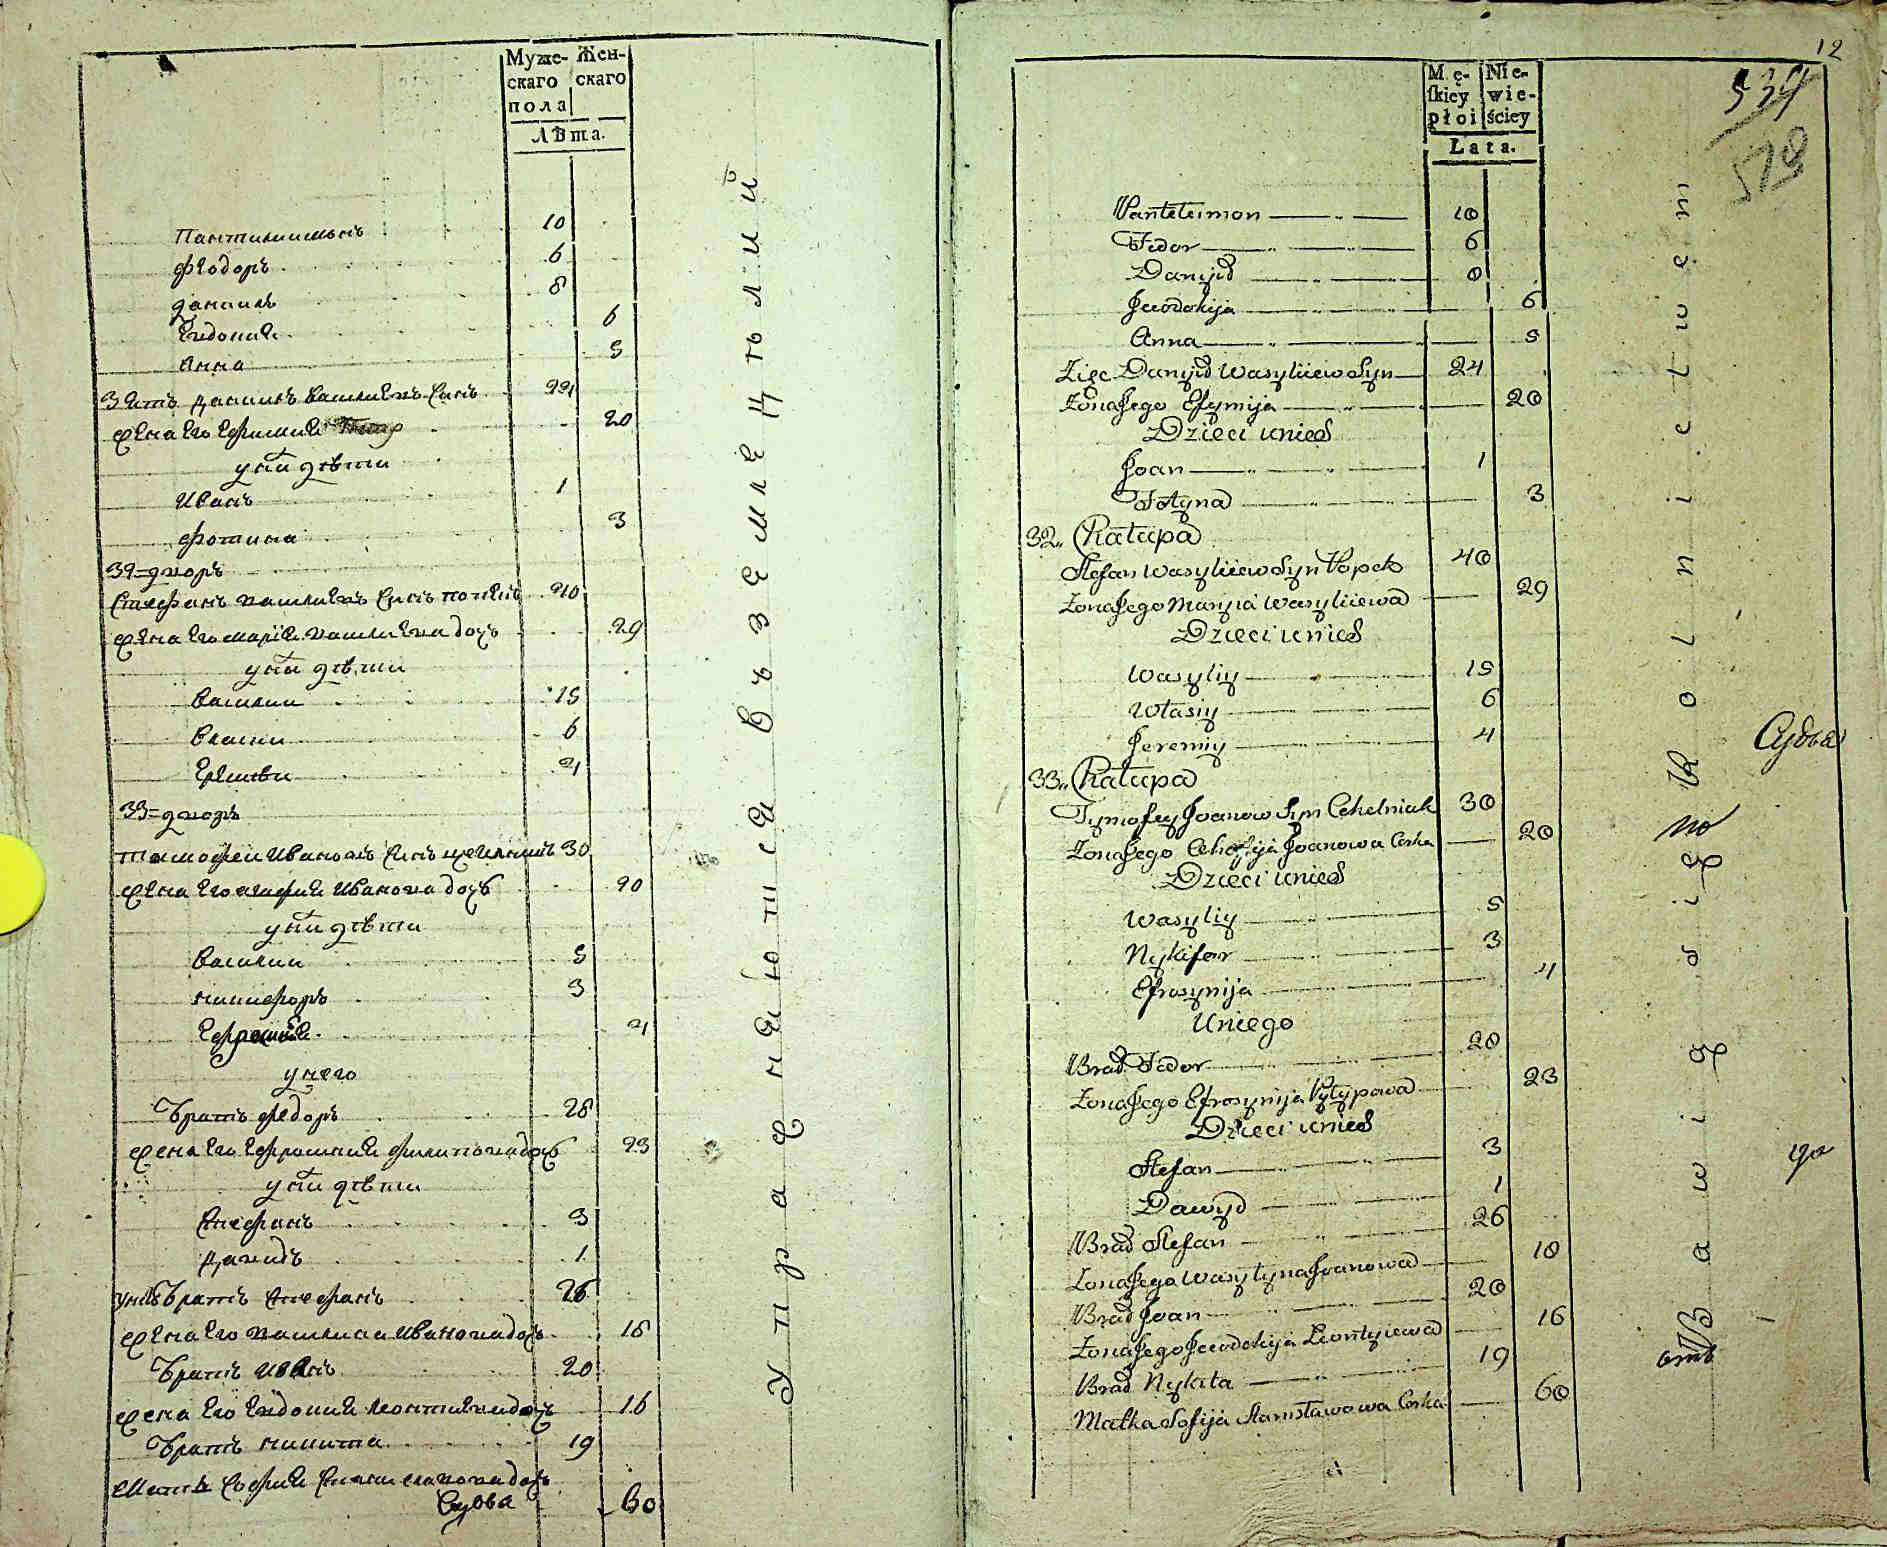 Муже- Жен-
скаго скаго
пола
Лѣта.
Пантилиимонъ 10
Феодоръ 6
Даниилъ 8
Евдокия 6
Анна 5
Зять Даниилъ Василиевъ синъ 24
жена его Ефимия 20
у них дѣти
Иванъ 1
Фотина 3
32=дворъ
Стефанъ Василиевъ синъ Попекъ 40
жена его Мария Василиева дочь 29
у них дѣти
Василии 15
Власии 6
Еремѣи 4
33=дворъ
Тимофеи Ивановъ синъ 30
жена его Агафия Иванова дочь 20
у них дѣти
Василии 5
Никифоръ 3
Ефросиния 4
у него
Братъ Федоръ 28
жена его Ефросиния Филипова дочь 23
у них дѣти
Стефанъ 3
Давидъ 1
Братъ Стефанъ 26
жена его Василиса Иванова дочь 18
Братъ Иванъ 20
жена его Евдокия Леонтиева дочь 16
Братъ Никита 19
Мать София Станиславова дочь
Судова 60
Упражняются въ земледѣлий
12
534
578
Mę- Nie-
skiey wie-
płci ściey
Lata.
Panteleimon 10
Fedor 6
Danyił 8
Jewdokija 6
Anna 5
Zięc Danyił Wasyliiew Syn 24
Żona Jego Efymija 20
Dzieci u nich
Joan 1
Fotyna 3
32. Chałupa
Stefan Wasyliiew Syn Popek 40
Żona Jego Maryia Wasyliiewa 29
Dzieci u nich
Wasyliy 15
Własiy 6
Jeremiy 4
33. Chałupa
Tymofey Joanow Syn Cehelniak 30
Żona Jego Joanowa Corka 20
Dzieci u nich
Wasyliy 5
Nykifor 3
Efrosynija 4
U niego
Brat Fedor 28
Żona Jego Efrosynija Fylypowa 23
Dzieci u nich
Stefan 3
Dawyd 1
Brat Stefan 26
Żona Jego Wasylyna Joanowa 18
Brat Joan 20
Żona Jego Jewdokija Leontyiewa 16
Brat Nykita 19
Matka Sofija Stanisławowa Corka 60
Bawią się Rolnictwem
Судья
по